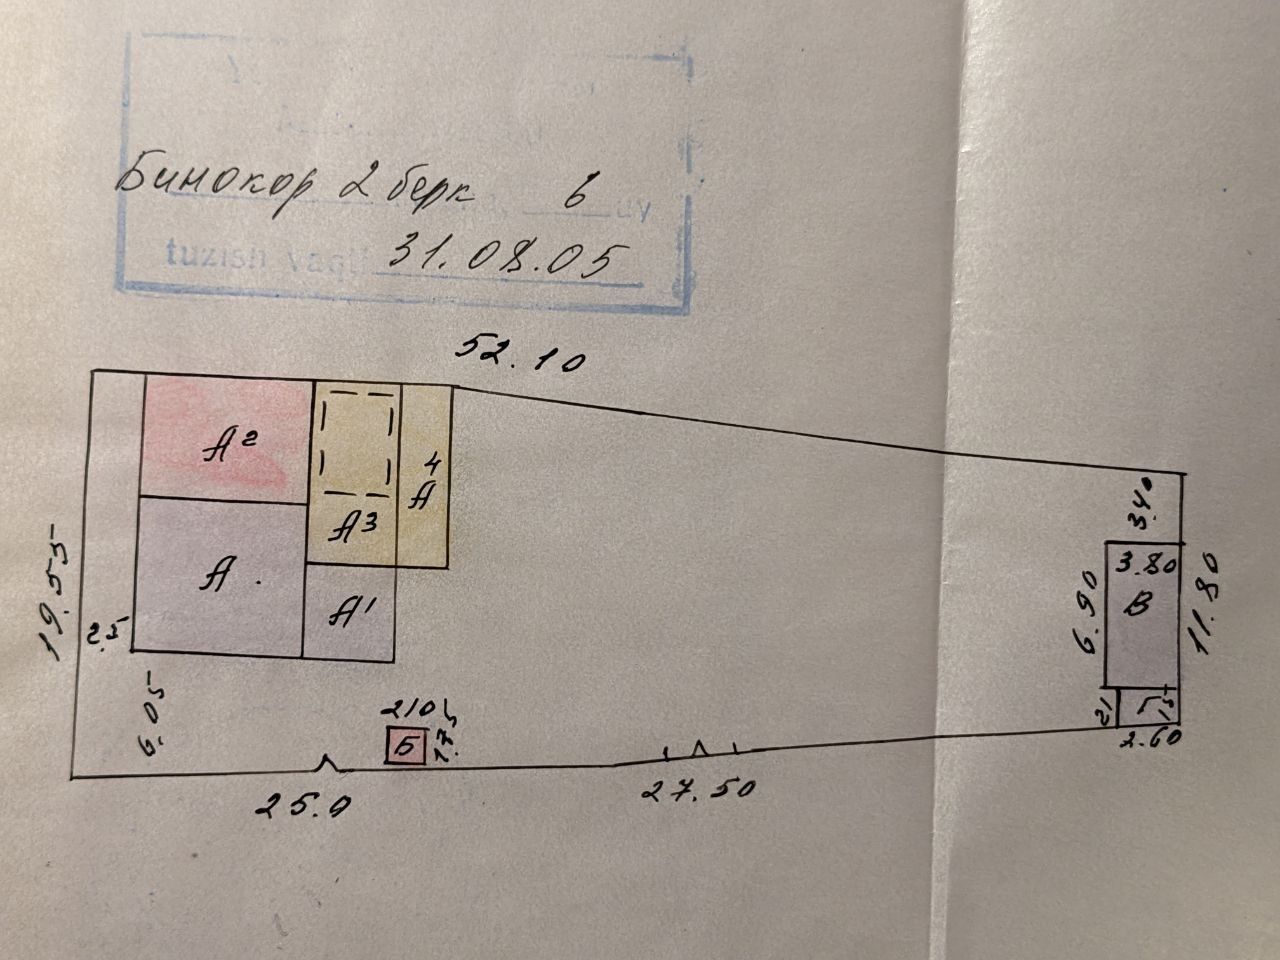 Бинокор 2 берк 6 uy
tuzish vaqti 31.08.05
52.10
А²
А³
4
А
А
А¹
19.55
2.5
6.05
210
Б
25.0
27.50
3.40
3.80
В
6.90
11.80
21
Г
2.60